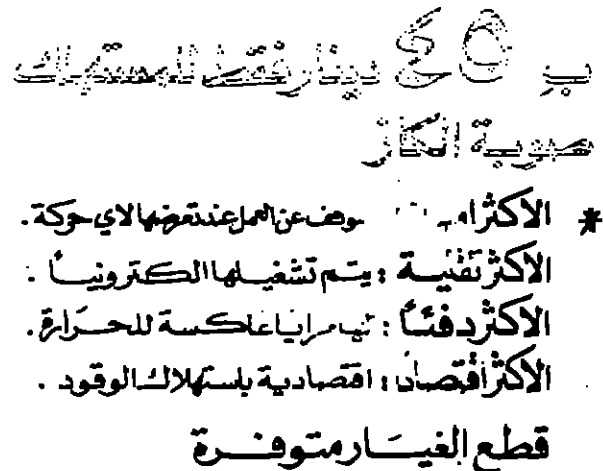 بـ ٤٥ دينار فقط للمستهلك
صوبة الكاز
* الاكثر عن العمل عند تعرضها لاي حركة.
الاكثر تقنيــة : يتــم تشغيــلها الكترونيــاً .
الاكثر دفئــاً : مرايا عاكسة للحــرارة.
الاكثر اقتصاداً : اقتصادية باستهلاك الوقود .
قطع الغيــار متوفــرة